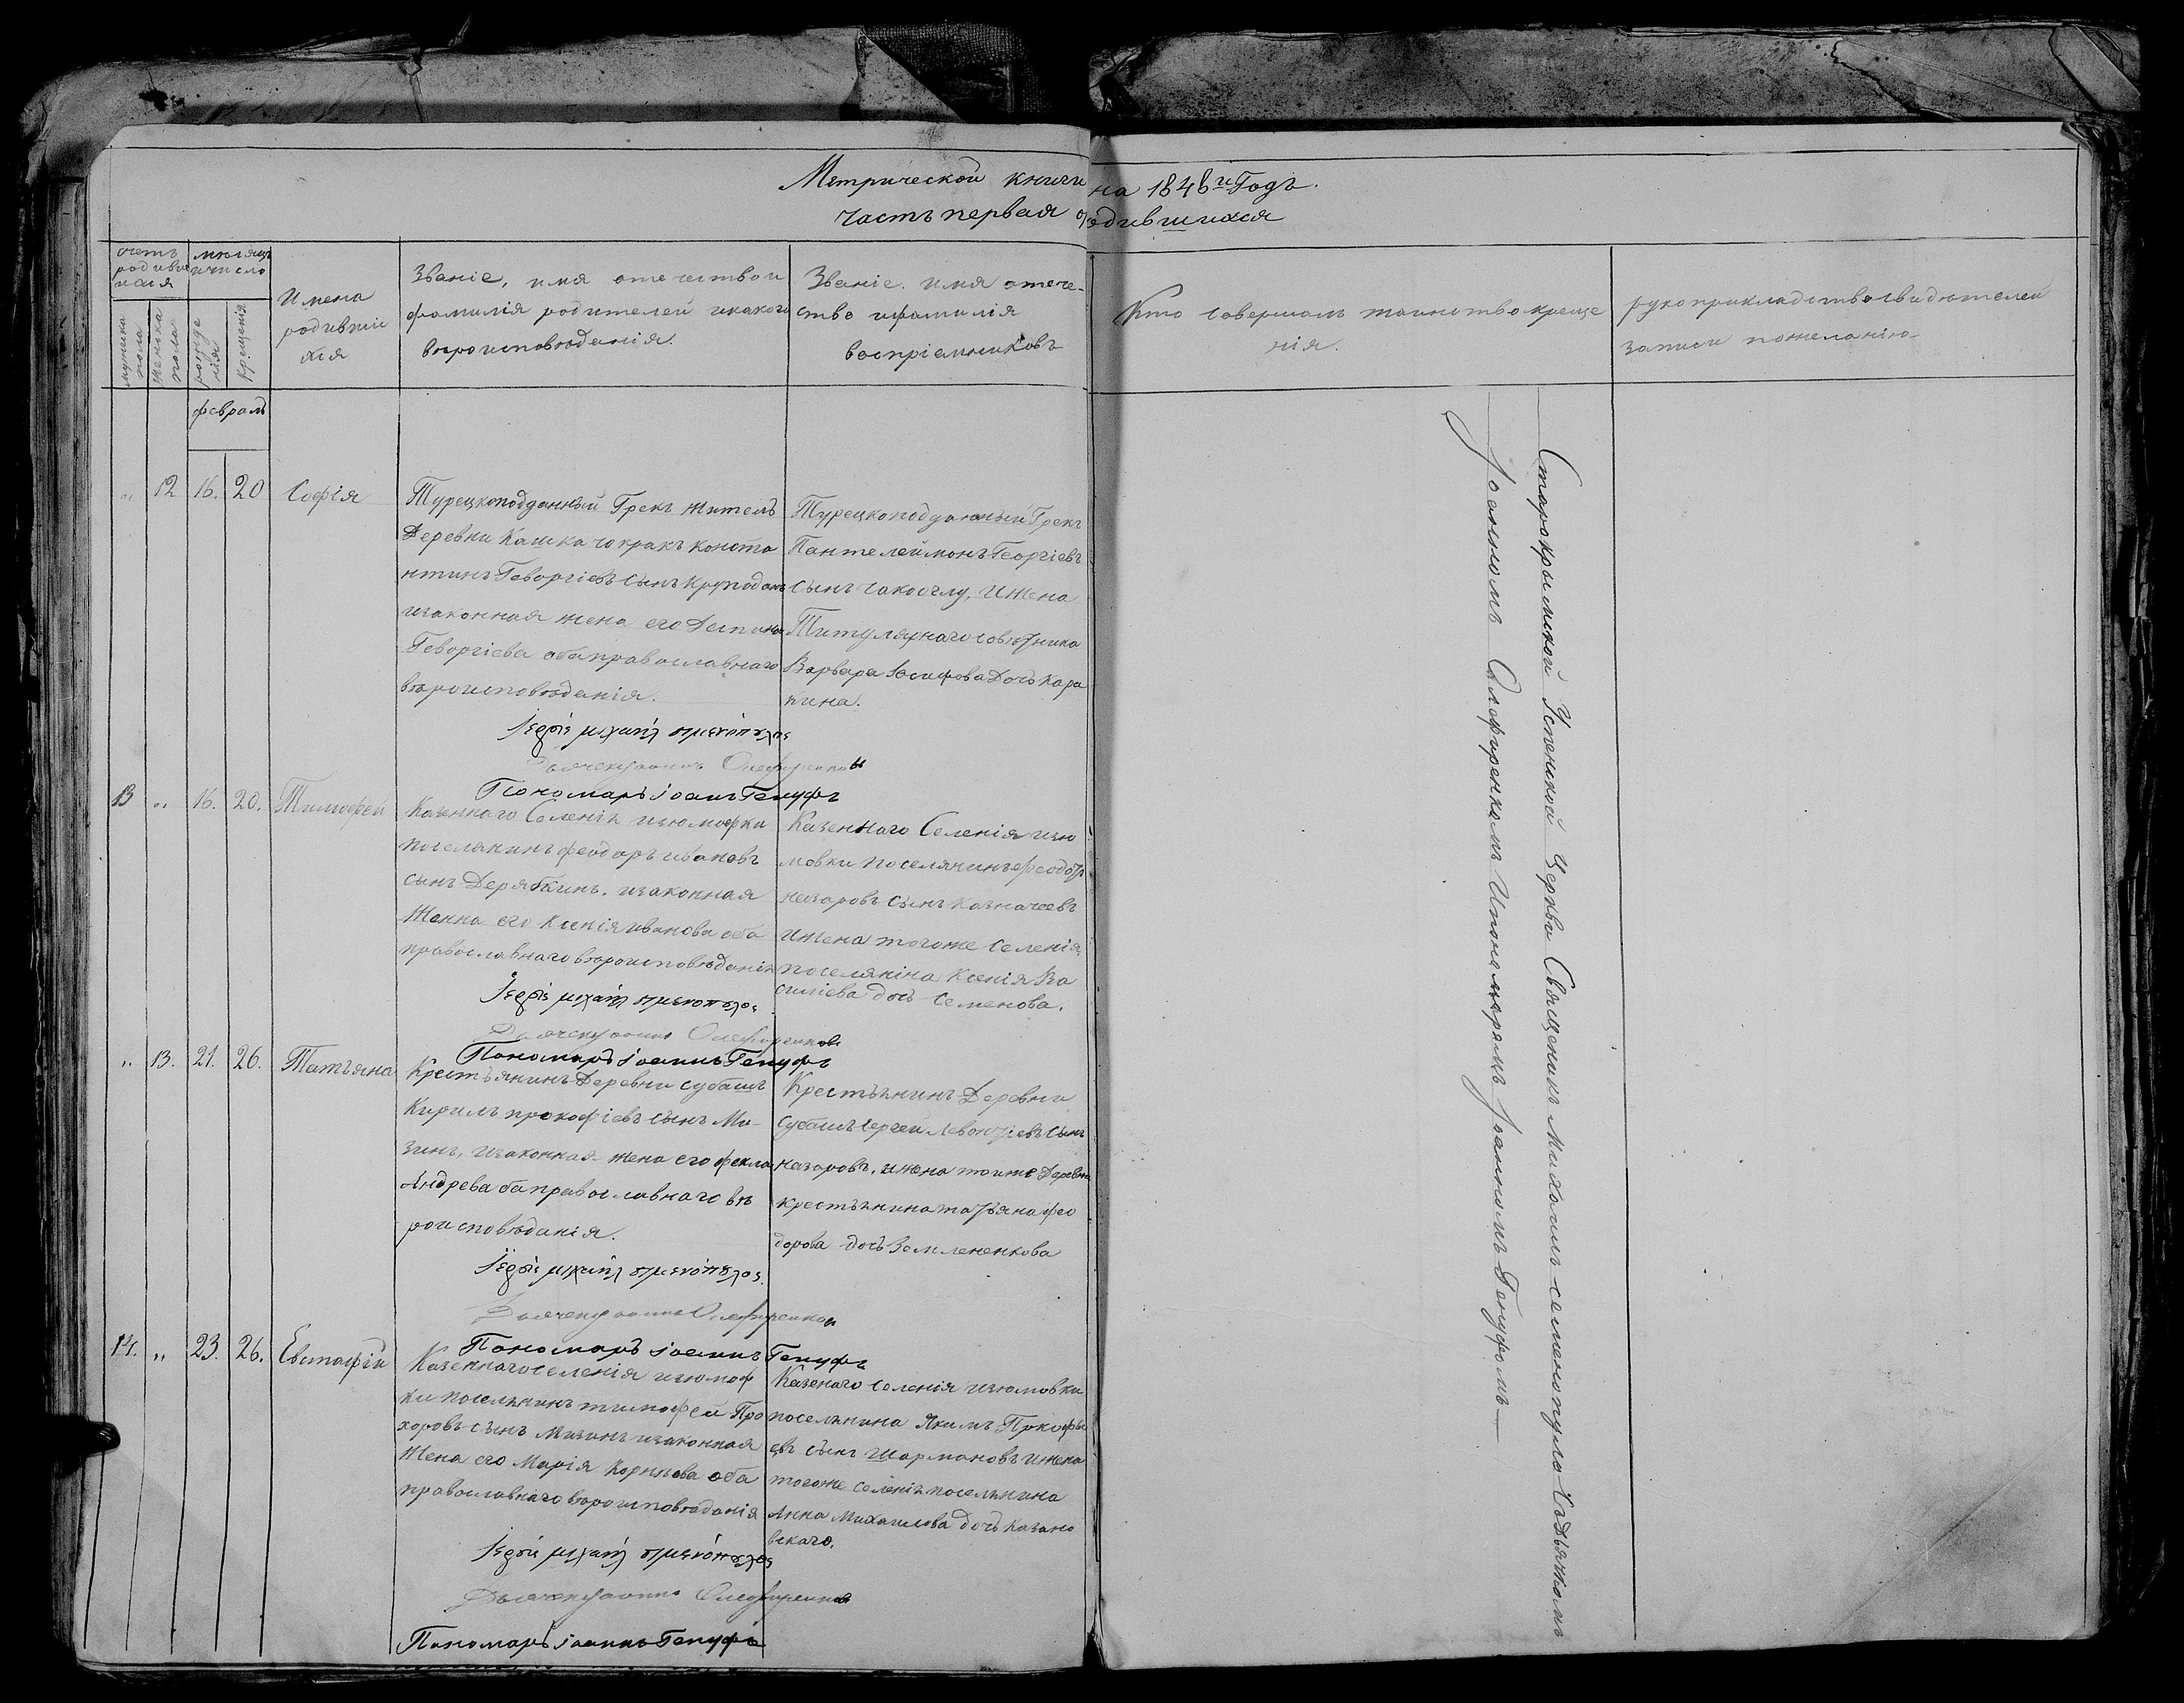 Метрической книги на 1848й Годъ.
Часть первая о родившихся
счетъ родившихся
месяцъ и число
мужска пола
женска пола
рожденія
крещенія
Имена родившихся
Званіе, имя отечество и
фамилія родителей и какого
вероисповѣданія.
Званіе. имя отече-
ство и фамилія
воспріемниковъ
Кто совершалъ таинство креще
нія.
рукоприкладство свидѣтелей
записи по желанію
февраль
„ 12 16. 20 Софія
Турецкоподданный Грекъ житель
Деревни Кашка чокракъ Конста
нтинъ Геворгіевъ сынъ
изаконная жена его Деспина
Геворгіева оба православнаго
вероисповѣданія.
Турецкоподданный Грекъ
Пантелеймонъ Георгіевъ
сынъ Чакоглу, и жена
Титулярнаго совѣтника
Варвара Іосифова Дочь Кара
пина.
Ἱερεὺς μιχαήλ σιμενόπουλος
Дьячекъ Іоаннъ Олефиренков
Пономарь Іоаннъ Генуфъ
13 „ 16. 20. Тимофей
Казеннаго Селенія изюмофки
поселянинъ феодоръ ивановъ
сынъ Дерябкинъ. изаконная
Женна его Ксенія иванова оба
православнаго вероисповѣданія
Казеннаго Селенія изю
мовки поселянинъ феодоръ
назаровъ сынъ Казначеевъ
и жена тогоже Селенія
поселянина Ксенія Ва
силіева дочь Семенова.
Ἱερεὺς μιχαήλ σιμενόπουλος
Дьячекъ Іоаннъ Олефиренков
Пономарь Іоаннъ Генуфъ
„ 13. 21. 26. Татьяна
Крестьянинъ Деревни Субашъ
Кирилъ прокофіевъ сынъ Ми-
зинъ, изаконная жена его фекла
Андрева оба православнаго вѣ
роисповѣданія.
Крестьянинъ Деревни
Субашъ Сергей Левонтіевъ сынъ
назаровъ, и жена тоиже Деревни
крестьянина татьяна фео
дорова дочь Землененкова
Ἱερεὺς μιχαήλ σιμενόπουλος
Дьячекъ Іоаннъ Олефиренков
Пономарь Іоаннъ Генуфъ
14. „ 23. 26. Евстафій
Казеннаго селенія изюмоф
ки поселянинъ тимофей Про
хоровъ сынъ Мизинъ изаконная
Жена его Марія Корнѣева оба
православнаго вероисповѣданія
Казенаго селенія изюмовки
поселянина Якимъ Прокофьи
евъ сынъ Шармановъ и жена
тогоже селенія поселянина
Анна Михаилова дочь Казано
вскаго.
Ἱερεὺς μιχαήλ σιμενόπουλος
Дьячекъ Іоаннъ Олефиренков
Пономарь Іоаннъ Генуфъ
Старокрымской Успенской Церкви Священикъ Михаилъ семенопуло Съ Дьячкомъ
Іоанномъ Олефиренкомъ Ипономаремъ Іоанномъ Генуфомъ —